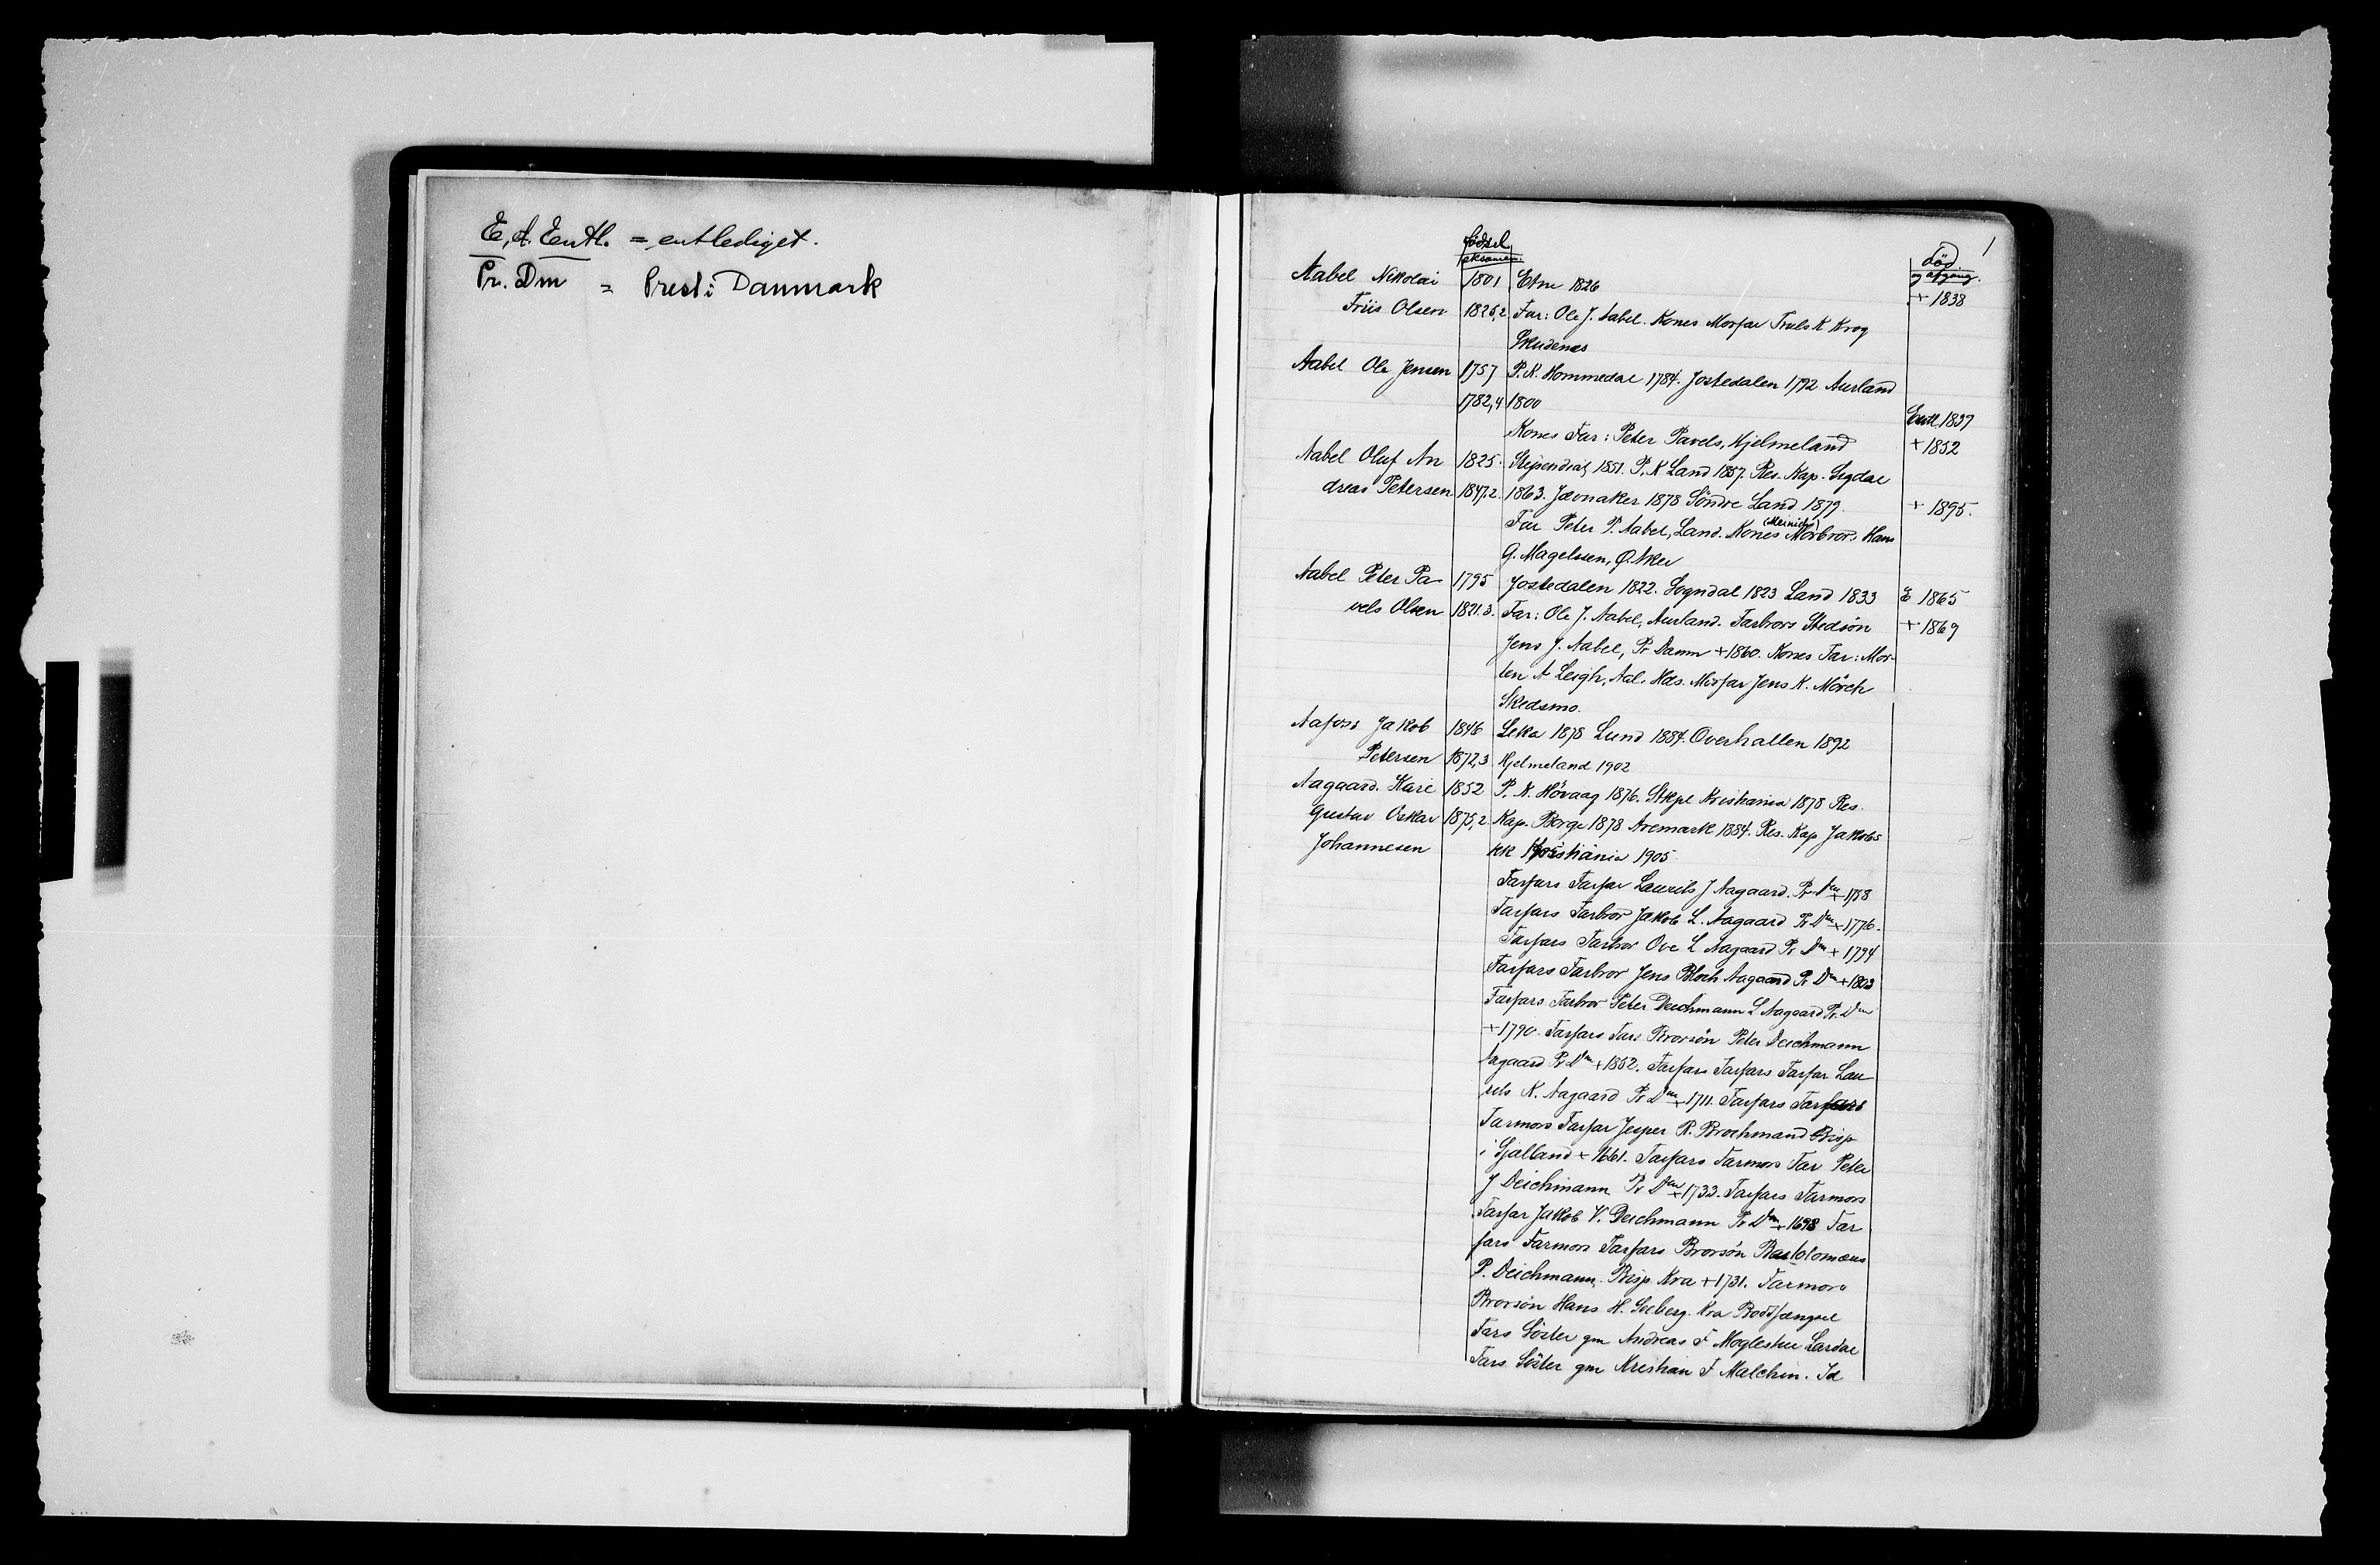 E, el. Entl. = entlediget.
Pr. Dm = Prest i Danmark
1
fødsel eksamen
død og afgang.
Aabel Nikolai 1801 Etne 1826 + 1838
Friis Olsen 1825,2 Far: Ole J. Aabel. Kones Morfar Truls K Krog
Skudenes
Aabel Ole Jensen 1757 P.K. Hommedal 1784. Jostedalen 1792 Aurland
1782,4 1800 Entl 1837
Kones Far: Peter Pavels, Hjelmeland + 1852
Aabel Oluf An 1825. Stipendiat 1851. P.K Land 1857. Res. Kap. Sigdal
dreas Petersen 1847.2. 1863. Jævnaker 1878 Söndre Land 1879. + 1895.
Far Peter P. Aabel, Land. Kones (Meinichs) Morbror: Hans
G. Magelssen, Ø. Aker
Aabel Peter Pa- 1795 Jostedalen 1822. Sogndal 1823 Land 1833 E 1865
vels Olsen 1821.3. Far: Ole J. Aabel, Aurland. Farbrors Stedsön + 1869
Jens J. Aabel, Pr Danm + 1860. Kones Far: Mor-
ten A Leigh, Aal. Hds. Morfar Jens K. Mörch
Skedsmo.
Aafoss Jakob 1846 Leka 1878 Lund 1884. Overhallen 1892
Petersen 1872,3 Hjelmeland 1902
Aagaard. Karl 1852 P. K. Hövaag 1876. Stkpl Kristiania 1878 Res.
Gustav Oskar 1875,2. Kap. Borge 1878 Aremark 1884. Res. Kap Jakobs
Johannesen kk Kristiania 1905
Farfars Farfar Laurits J Aagaard. Pr Dm + 1758
Farfars Farbror Jakob L. Aagaard Pr Dm + 1776.
Farfars Farbror Ove L Aagaard Pr Dm + 1794
Farfars Farbror Jens Bloch Aagaard Pr Dm + 1803
Farfars Farbror Peter Deichmann L Aagaard Pr. Dm
+ 1790. Farfars Fars Brorsön Peter Deichmann
Aagaard Pr Dm + 1852. Farfars Farfars Farfar Lau
rits K. Aagaard Pr Dm + 1711. Farfars Farfars
Farmors Farfar Jesper R. Brochmand Bisp
i Sjælland + 1661. Farfars Farmors Far Peter
J Deichmann Pr Dm + 1733. Farfars Farmors
Farfar Jakob V. Deichmann Pr Dm + 1698 Far
fars Farmors Farfars Brorsön Bartolomæus
P. Deichmann. Bisp Kra + 1731. Farmors
Brorsön Hans H. Seeberg. Kra Bodsfængsel
Fars Söster gm Andreas F Moglestue Lardal
Fars Söster gm Kristian F Malchin. Id